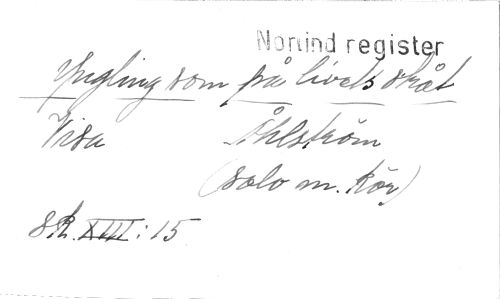 Norlind register
Yngling som på livets stråt
Visa Åhlström
(solo m. kör)
sk. XIII: 15